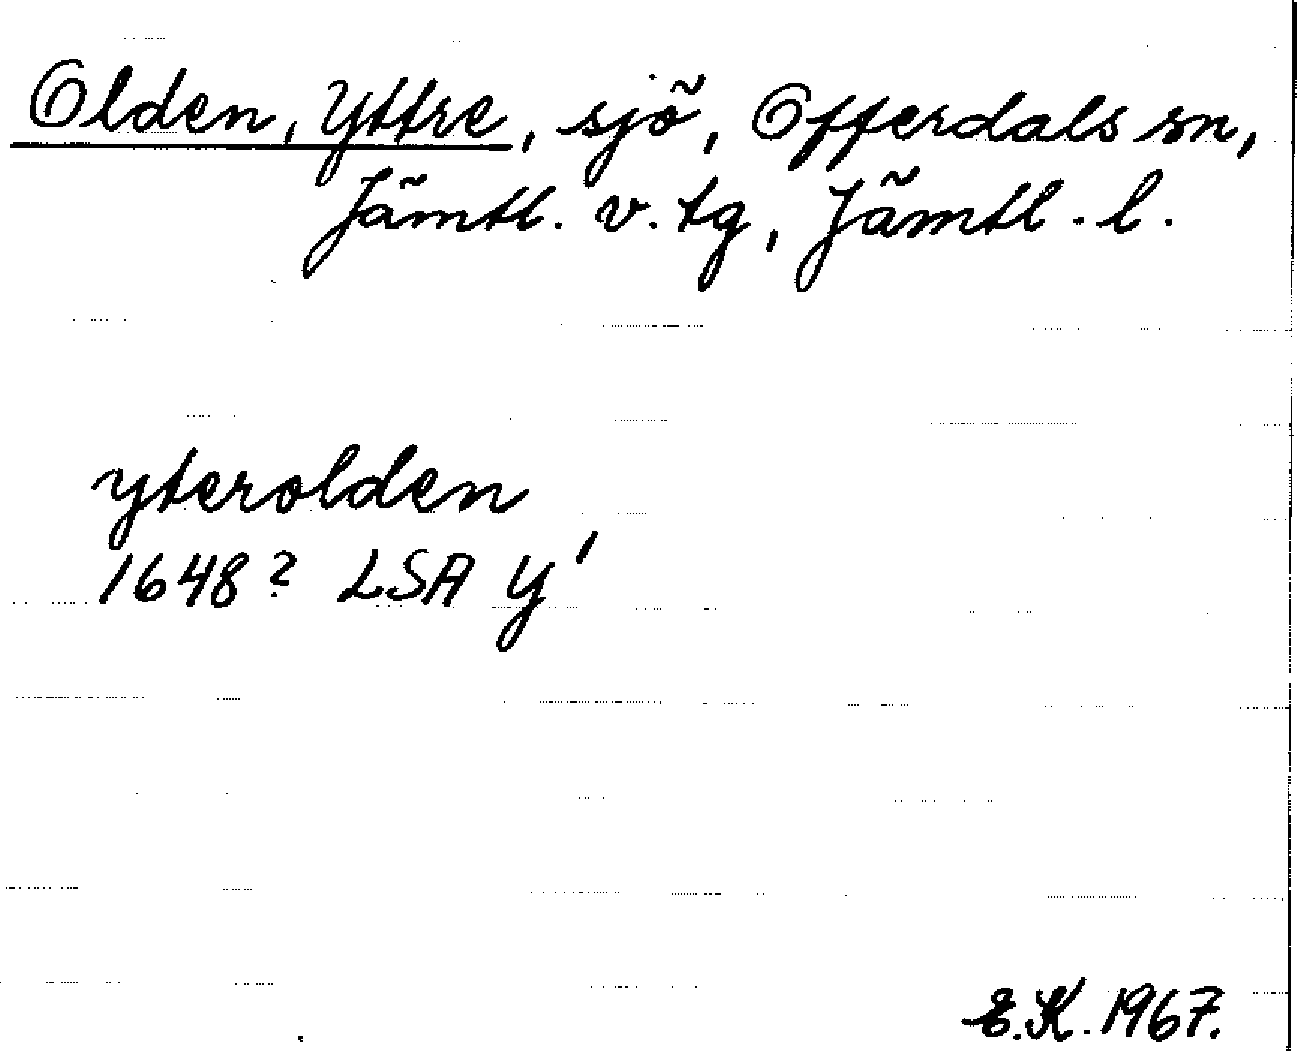 Olden, Yttre, sjö, Offerdals sn,
Jämtl. v. tg, Jämtl. l.
yterolden
1648? LSA Y'
E.K. 1967.